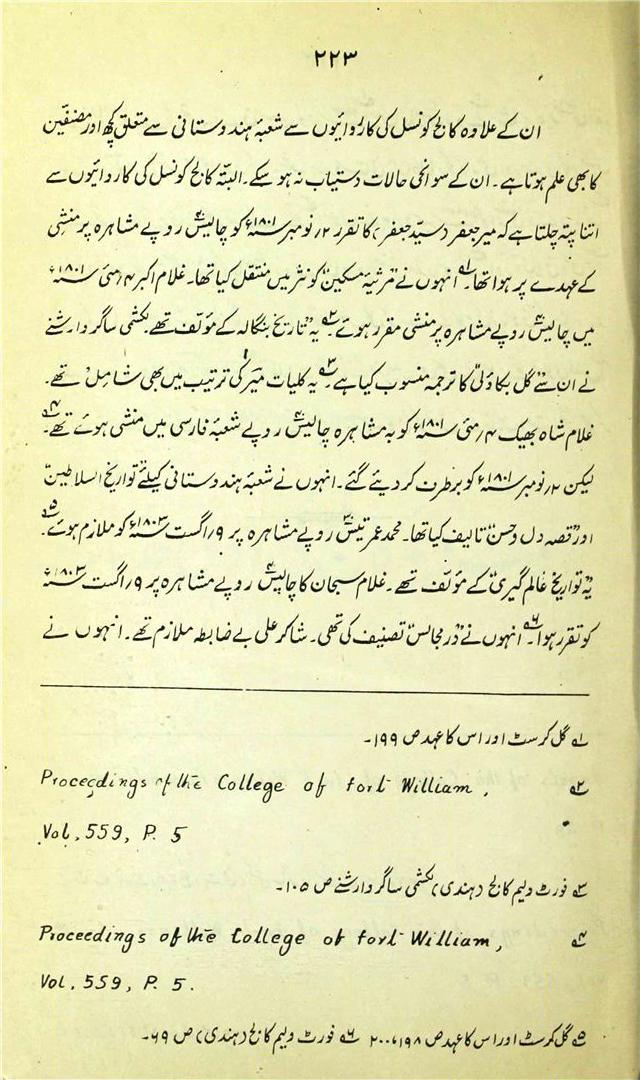 ۲۲۳
ان کے علاوہ کالج کونسل کی کارروائیوں سے شعبۂ ہندوستانی سے متعلق کچھ اور مصنفین
کا بھی علم ہوتا ہے۔ ان کے سوانحی حالات دستیاب نہ ہو سکے۔ البتّہ کالج کونسل کی کارروائیوں سے
اتنا پتہ چلتا ہے کہ میر جعفر (سیّد جعفر) کا تقرر ۲؍ نومبر ۱۸۰۱ء کو چالیس۴۰ روپے مشاہرہ پر منشی
کے عہدے پر ہوا تھا۔۱ انہوں نے "مرثیۂ مسکین" کو نثر میں منتقل کیا تھا۔ غلام اکبر ۴؍مئی ۱۸۰۱ء
میں چالیس۴۰ روپے مشاہرہ پر منشی مقرر ہوئے۔۲ یہ "تاریخ بنگالہ" کے مؤلف تھے۔ لکشمی ساگر وارشنے
نے ان سے "گل بکاؤلی" کا ترجمہ منسوب کیا ہے۔۳ یہ کلیات میر کی ترتیب میں بھی شامل تھے۔
غلام شاہ بھیک ۴؍مئی ۱۸۰۱ء کو بہ مشاہرہ چالیس۴۰ روپے شعبۂ فارسی میں منشی ہوئے تھے۔۴
لیکن ۲؍نومبر ۱۸۰۱ء کو برطرف کر دیئے گئے۔ انہوں نے شعبۂ ہندوستانی کیلئے "تواریخ السلاطین"
اور "قصہ دل و حسن" تالیف کیا تھا۔ محمد عمر تیس۳۰ روپے مشاہرہ پر ۹؍اگست ۱۸۰۳ء کو ملازم ہوئے۔۵
یہ "تواریخ عالم گیری" کے مؤلف تھے۔ غلام سبحان کا چالیس۴۰ روپے مشاہرہ پر ۹؍اگست ۱۸۰۳ء
کو تقرر ہوا۔۶ انہوں نے "در مجالس" تصنیف کی تھی۔ شاکر علی بے ضابطہ ملازم تھے۔ انہوں نے
۱ گل کرسٹ اور اس کا عہد ص ۱۹۹۔
۲ Proceedings of the College of Fort William,
Vol. 559, P. 5
۳ فورٹ ولیم کالج (ہندی) لکشمی ساگر وارشنے ص ۱۰۵۔
۴ Proceedings of the College of Fort William,
Vol. 559, P. 5.
۵ گل کرسٹ اور اس کا عہد ص ۱۹۸، ۲۰۰ ۶ فورٹ ولیم کالج (ہندی) ص ۶۹۔